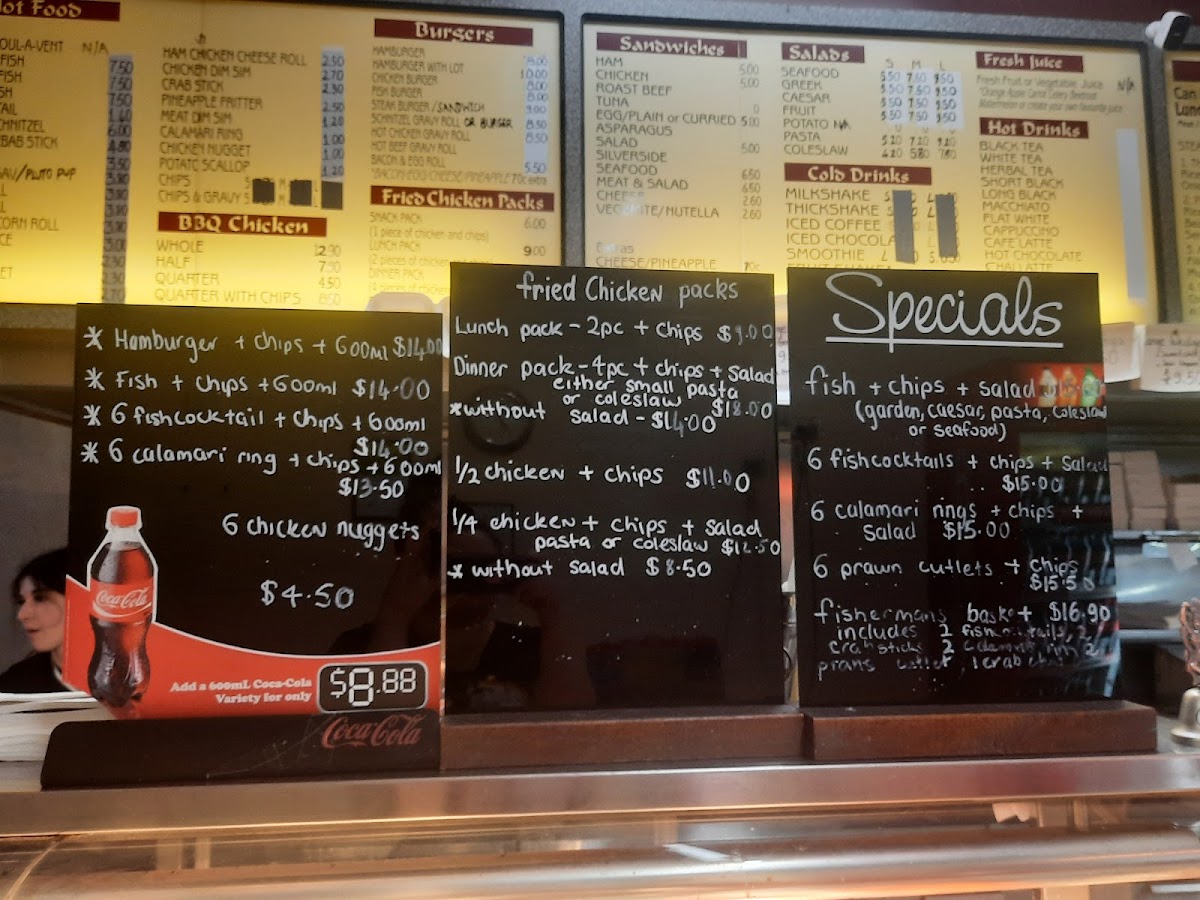 Hot Food
OUL-A-VENT N/A
FISH 7.50
FISH 7.50
7.50
TAIL 1.40
SCHNITZEL 6.00
EBAB STICK 4.80
3.50
SAV/PLUTO PUP 3.80
CORN ROLL
HAM CHICKEN CHEESE ROLL 2.50
CHICKEN DIM SIM 2.70
CRAB STICK 2.30
PINEAPPLE FRITTER 2.50
MEAT DIM SIM 1.20
CALAMARI RING 1.00
CHICKEN NUGGET 1.00
POTATO SCALLOP 1.20
CHIPS S M L
CHIPS & GRAVY S
BBQ Chicken
WHOLE 12.90
HALF 7.50
QUARTER 4.50
QUARTER WITH CHIPS 8.50
Burgers
HAMBURGER 8.00
HAMBURGER WITH LOT 10.00
CHICKEN BURGER 8.00
FISH BURGER 8.00
STEAK BURGER/SANDWICH 9.00
SCHNITZEL GRAVY ROLL OR BURGER 8.50
HOT CHICKEN GRAVY ROLL 8.50
HOT BEEF GRAVY ROLL
BACON & EGG ROLL 5.50
*BACON/EGG/CHEESE/PINEAPPLE 70c extra
Fried Chicken Packs
SNACK PACK 6.00
(1 piece of chicken and chips)
LUNCH PACK 9.00
(2 pieces of chicken and chips)
DINNER PACK
Sandwiches
HAM
CHICKEN 5.00
ROAST BEEF 5.00
TUNA
EGG/PLAIN or CURRIED 5.00
ASPARAGUS
SALAD
SILVERSIDE 5.00
SEAFOOD
MEAT & SALAD 6.50
CHEESE 2.60
VEGEMITE/NUTELLA 2.60
Extras
CHEESE/PINEAPPLE 70c
Salads
S M L
SEAFOOD 5.50 7.50 9.50
GREEK 5.50 7.50 9.50
CAESAR 5.50 7.50 9.50
FRUIT 5.50 7.50 9.50
POTATO N/A
PASTA 5.20 7.20 9.20
COLESLAW 4.20 5.80 7.80
Cold Drinks
MILKSHAKE
THICKSHAKE
ICED COFFEE
ICED CHOCOLA
SMOOTHIE
Fresh Juice
Fresh Fruit or Vegetable Juice N/A
*Orange Apple Carrot Celery Beetroot
Watermelon or create your own favourite juice
Hot Drinks
BLACK TEA
WHITE TEA
HERBAL TEA
SHORT BLACK
LONG BLACK
MACCHIATO
FLAT WHITE
CAPPUCCINO
CAFE LATTE
HOT CHOCOLATE
CHAI LATTE
* Hamburger + chips + 600ml $14.00
* Fish + chips + 600ml $14.00
* 6 fishcocktail + chips + 600ml
$14.00
* 6 calamari ring + chips + 600ml
$13.50
6 chicken nuggets
$4.50
Coca-Cola
Add a 600mL Coca-Cola
Variety for only
$8.88
Coca-Cola
fried Chicken packs
Lunch pack - 2pc + chips $9.00
Dinner pack - 4pc + chips + salad
either small pasta
or coleslaw $18.00
*without
salad - $14.00
1/2 chicken + chips $11.00
1/4 chicken + chips + salad
pasta or coleslaw $12.50
* without salad $8.50
Specials
fish + chips + salad
(garden, caesar, pasta, coleslaw
or seafood)
6 fishcocktails + chips + salad
$15.00
6 calamari rings + chips +
salad $15.00
6 prawn cutlets + chips
$15.50
fishermans basket $16.90
includes 2 fishcocktails, 2
crabsticks 2 calamari rin 2
prans cutlet, 1 crab